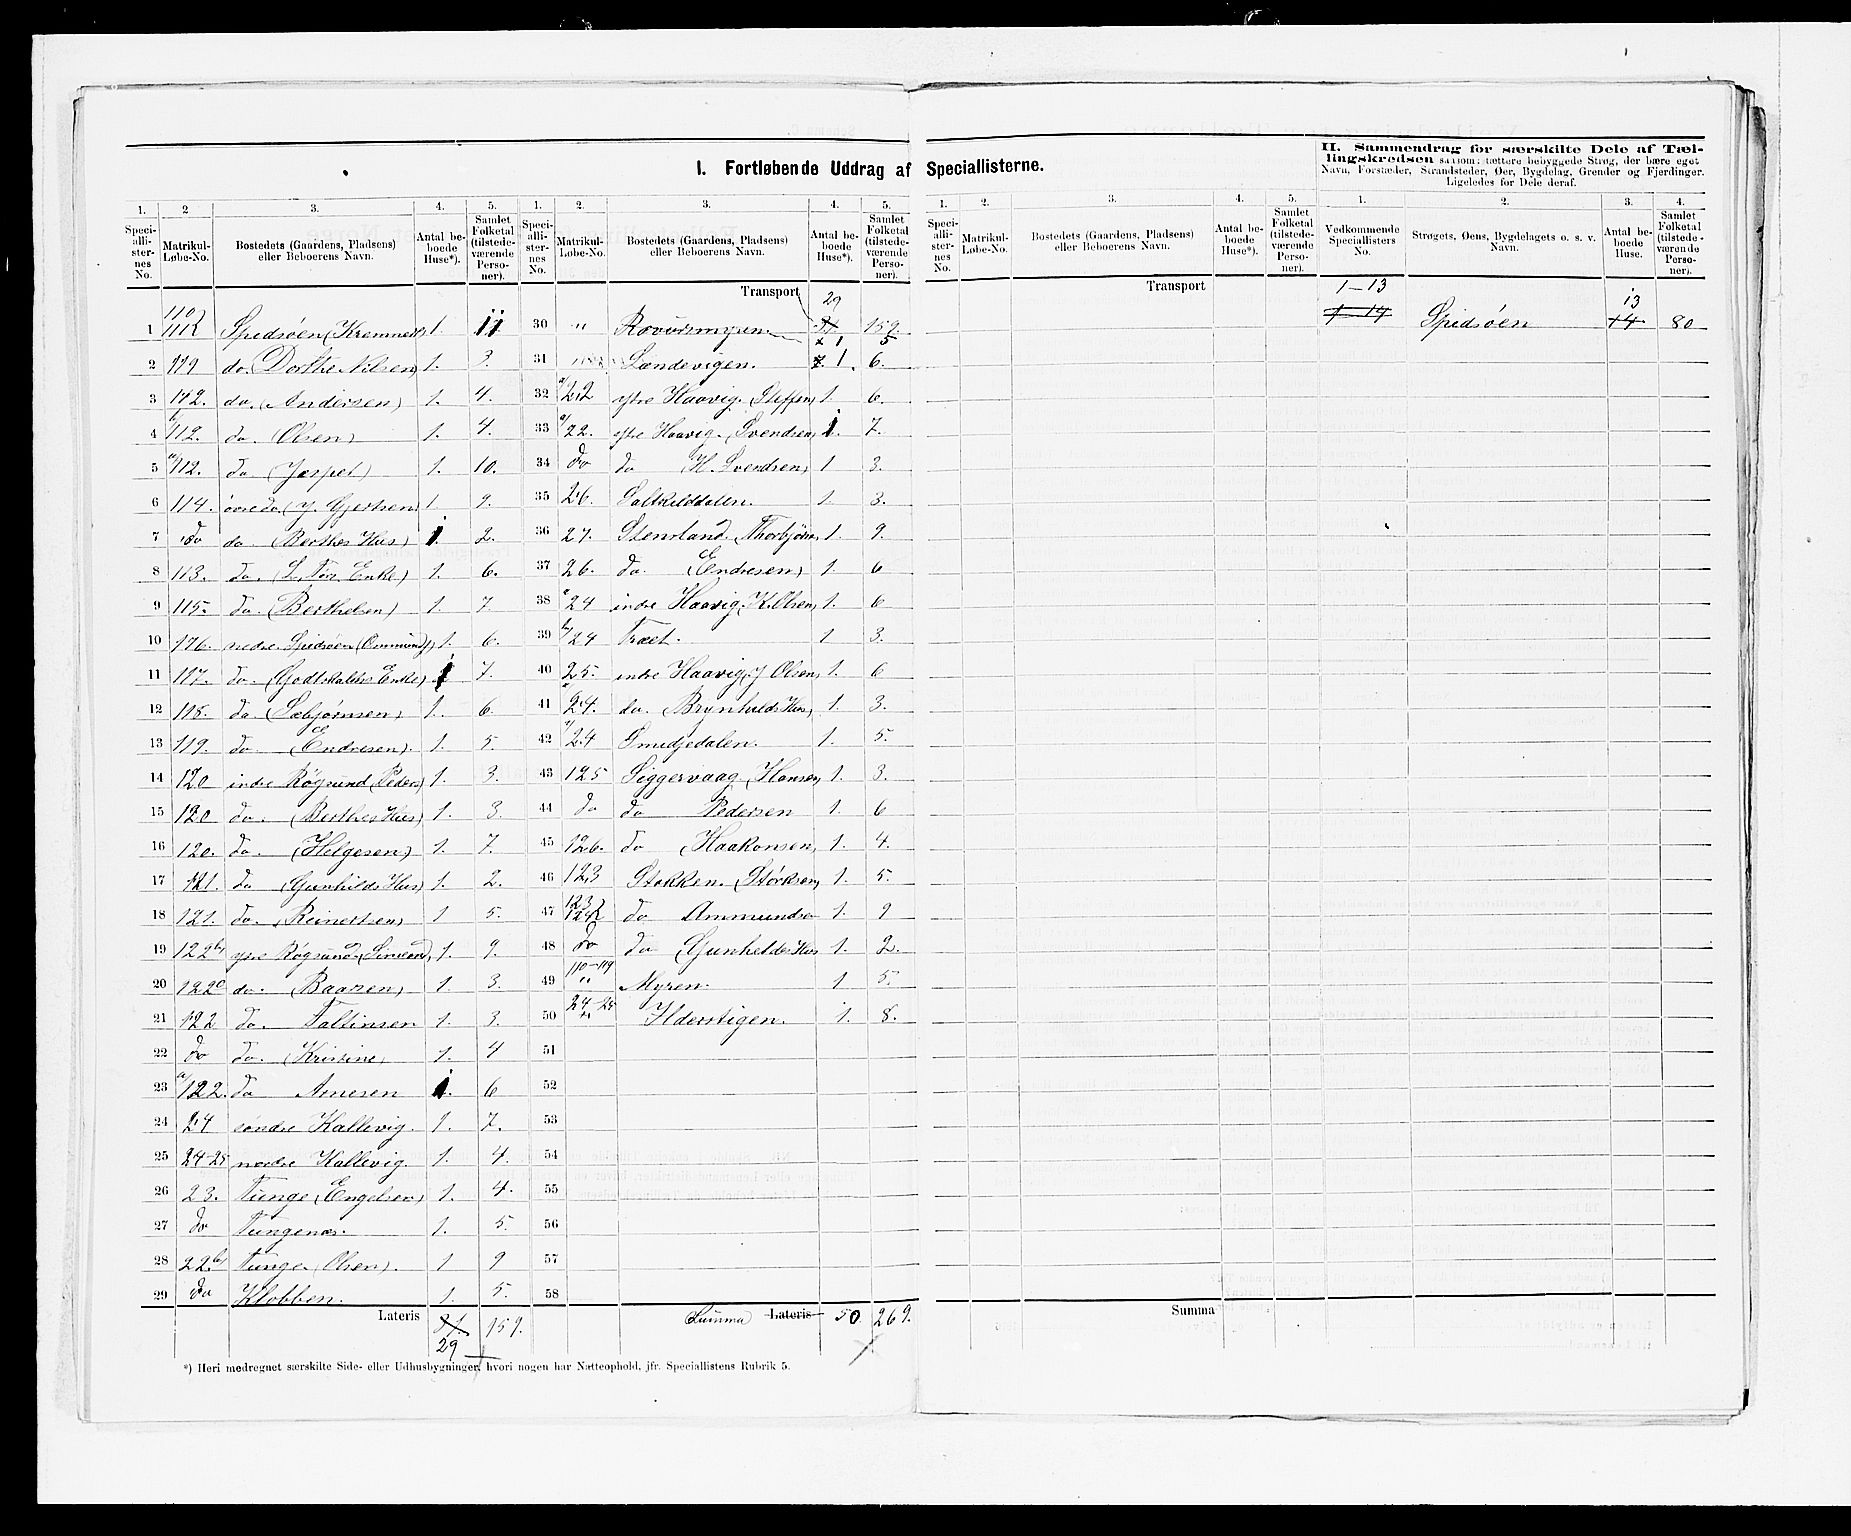 I. Fortløbende Uddrag af Speciallisterne.
II. Sammendrag for særskilte Dele af Tæl-
lingskredsen saasom: tættere bebyggede Strøg, der bære eget
Navn, Forstæder, Strandsteder, Øer, Bygdelag, Grender og Fjerdinger.
Ligeledes for Dele deraf.
1. 2 3. 4. 5. 1. 2. 3. 4. 5. 1. 2. 3. 4. 5. 1. 2. 3. 4.
Speci-alli-ster-nes No. Matrikul-Løbe-No. Bostedets (Gaardens, Pladsens) eller Beboerens Navn. Antal be-boede Huse*). Samlet Folketal (tilstede-værende Perso-ner).
Speci-alli-ster-nes No. Matrikul-Løbe-No. Bostedets (Gaardens, Pladsens) eller Beboerens Navn. Antal be-boede Huse*). Samlet Folketal (tilstede-værende Perso-ner).
Speci-alli-ster-nes No. Matrikul-Løbe-No. Bostedets (Gaardens, Pladsens) eller Beboerens Navn. Antal be-boede Huse*). Samlet Folketal (tilstede-værende Perso-ner).
Vedkommende Speciallisters No. Strøgets, Øens, Bygdelagets o. s. v. Navn. Antal be-boede Huse. Samlet Folketal (tilstede-værende Perso-ner).
1 Spidsøen 1. 11
2 119 do. Dorthe Nilsen) 1. 3.
3 112. do. (Andersen) 1. 4.
4 b/112. do. (Olsen) 1. 4.
5 a/112. do (Jesper) 1. 10.
6 114. øvre do (J. Gjertsen) 1. 9.
7 do do (Berthes Hus) 1. 2.
8 113. do. Enke) 1. 6.
9 115. do. (Berthelsen) 1. 7.
10 116. nedre Spidsøen (Ommund) 1. 6.
11 117. do. (Godtskalks Enke) 1 7.
12 118. do. (Sebjørnsen) 1. 6.
13 119. do (Endresen). 1. 5.
14 120 indre Røgsund (Peders) 1. 3.
15 120 do. (Berthes Hus) 1. 3.
16 120. do. (Helgesen) 1. 7.
17 121. do (Gunhilds Hus) 1. 2.
18 121. do. (Reinertsen) 1 5.
19 122 b) ytre Røgsund (Simens) 1. 9.
20 122 c do. (Baarsen) 1. 3.
21 122 do. Faltinsen 1. 3.
22 do do. (Kristine) 1. 4
23 a/122. do Arnesen 1. 6
24 24 søndre Kallevig. 1. 7.
25 24-25 nordre Kallevig. 1. 4.
26 23. Tunge (Engelsen) 1. 4.
27 do Tungenæs. 1. 5.
28 22. b) Tunge (Olsen). 1 9
29 do Klobben. 1. 5.
Lateris 31. 159.
29
Transport 29 31 159.
30 " 1 5
31 Sandevigen. 1. 6.
32 a/22 ytre Haavig (Steffen) 1. 6.
33 a/22. ytre Haavig. (Svendsen) 1. 7.
34 do do H. Svendsen) 1 3.
35 26. Saltkilddalen. 1. 3.
36 27. Stensland. (Thorbjørn) 1. 9.
37 26. do. (Endresen) 1. 6
38 a 24 indre Haavig (K. Olsen) 1. 6
39 b/24 Træet. 1 3.
40 25. indre Haavig (J Olsen) 1. 6
41 24. do. (Brynhilds Hus) 1. 3.
42 a/24 Smedjedalen. 1. 5.
43 125 Siggervaag. (Hansen) 1. 3.
44 do do Pedersen 1. 6
45 126. do (Haakonsen) 1. 4.
46 123 Stokken. (Størksen) 1. 5.
47 123 124 do Ammundsen 1. 9
48 do do (Gunhilds Hus 1. 2.
49 110-119 " Myren. 1 5.
50 24-25 " Ilderstigen. 1. 8.
51
52
53
54
55
56
57
58
Summa Lateris 50. 269.
Transport
Summa
1-13
1-14 Spidsøen 13 14 80
*) Heri medregnet særskilte Side- eller Udhusbygninger, hvori nogen har Natteophold, jfr. Speciallistens Rubrik 5.